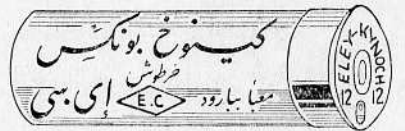 كينوخ بونكس
خرطوش
معبأ ببارود E.C إى سى
ELEX-KYNOCH
12 12